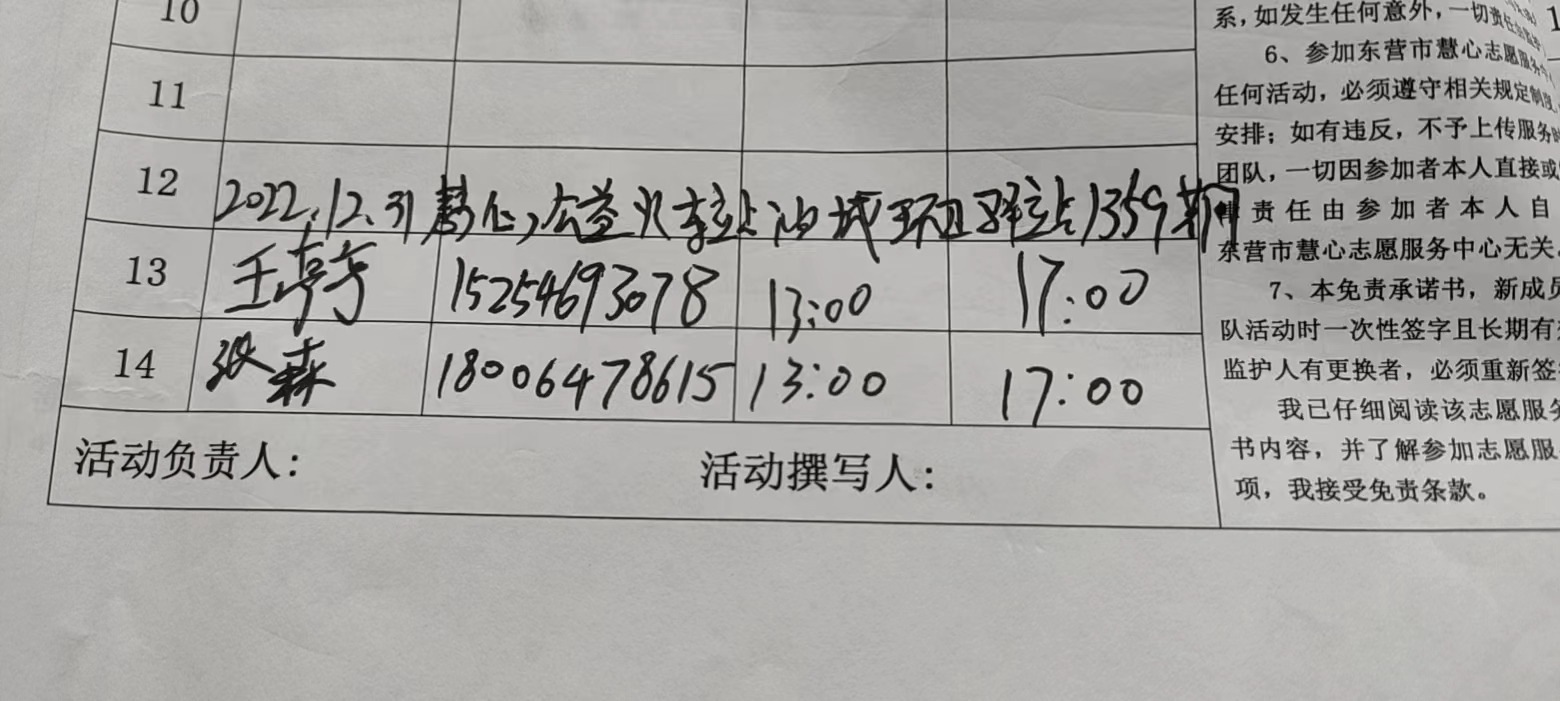 10
11
12 2022.12.31慧心公益火车站油城环卫驿站1359期
13 王亭亭 15254693078 13:00 17:00
14 张森 18006478615 13:00 17:00
活动负责人: 活动撰写人:
系,如发生任何意外,一切责任
6、参加东营市慧心志愿服务
任何活动,必须遵守相关规定制度
安排;如有违反,不予上传服务
团队,一切因参加者本人直接或
责任由参加者本人自
东营市慧心志愿服务中心无关
7、本免责承诺书,新成员
队活动时一次性签字且长期有
监护人有更换者,必须重新签
我已仔细阅读该志愿服务
书内容,并了解参加志愿服
项,我接受免责条款。